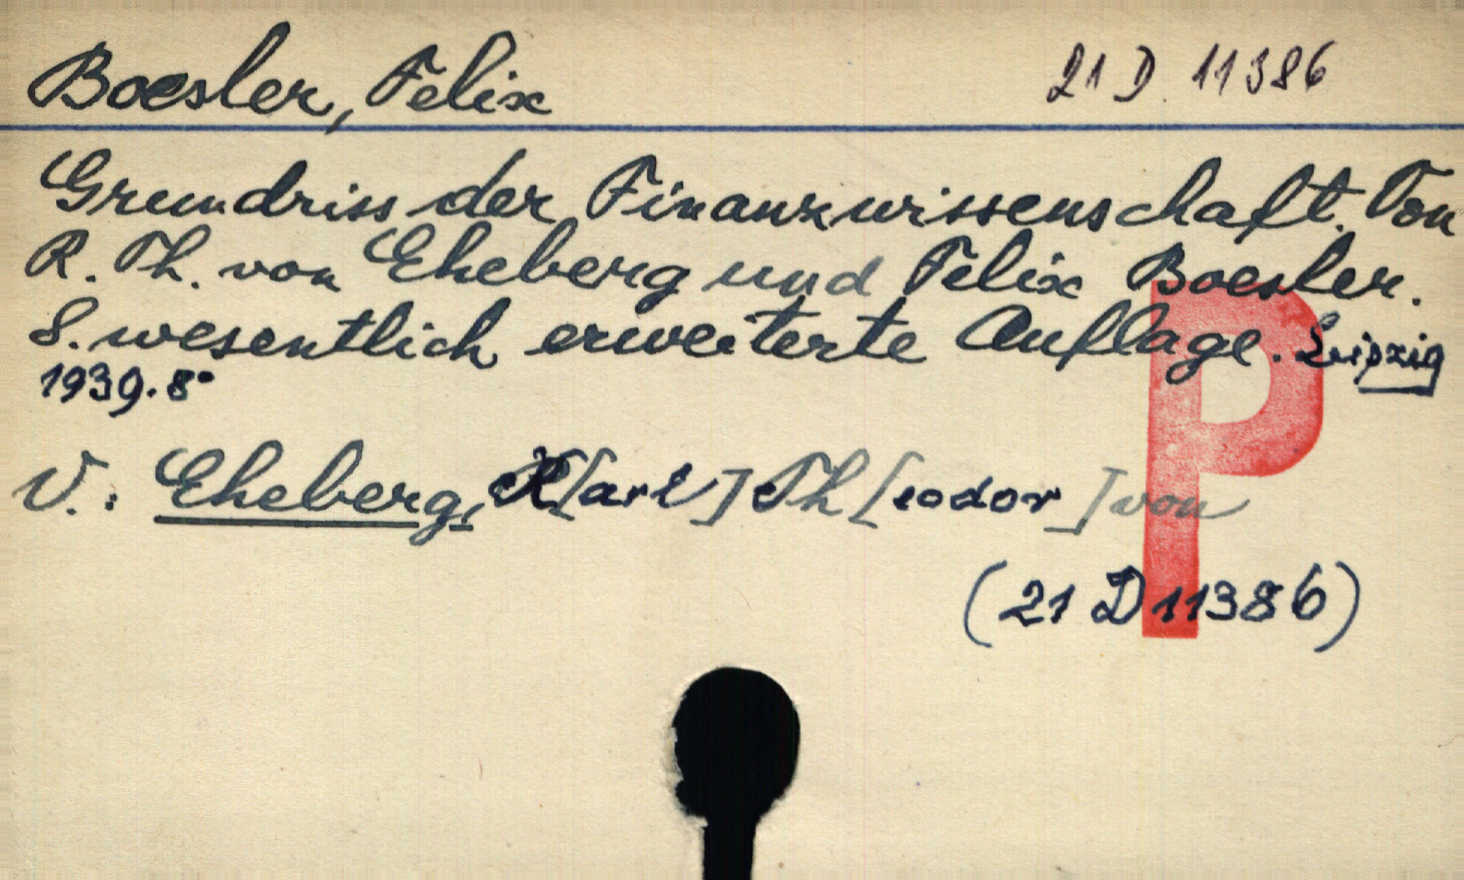 Boesler, Felix 21 D 11386
Grundriss der Finanzwissenschaft. Von
R. Th. von Eheberg und Felix Boesler.
8. wesentlich erweiterte Auflage. Leipzig
1939. 8°
V.: Eheberg, K[arl] Th[eodor] von
(21 D 11386)
P